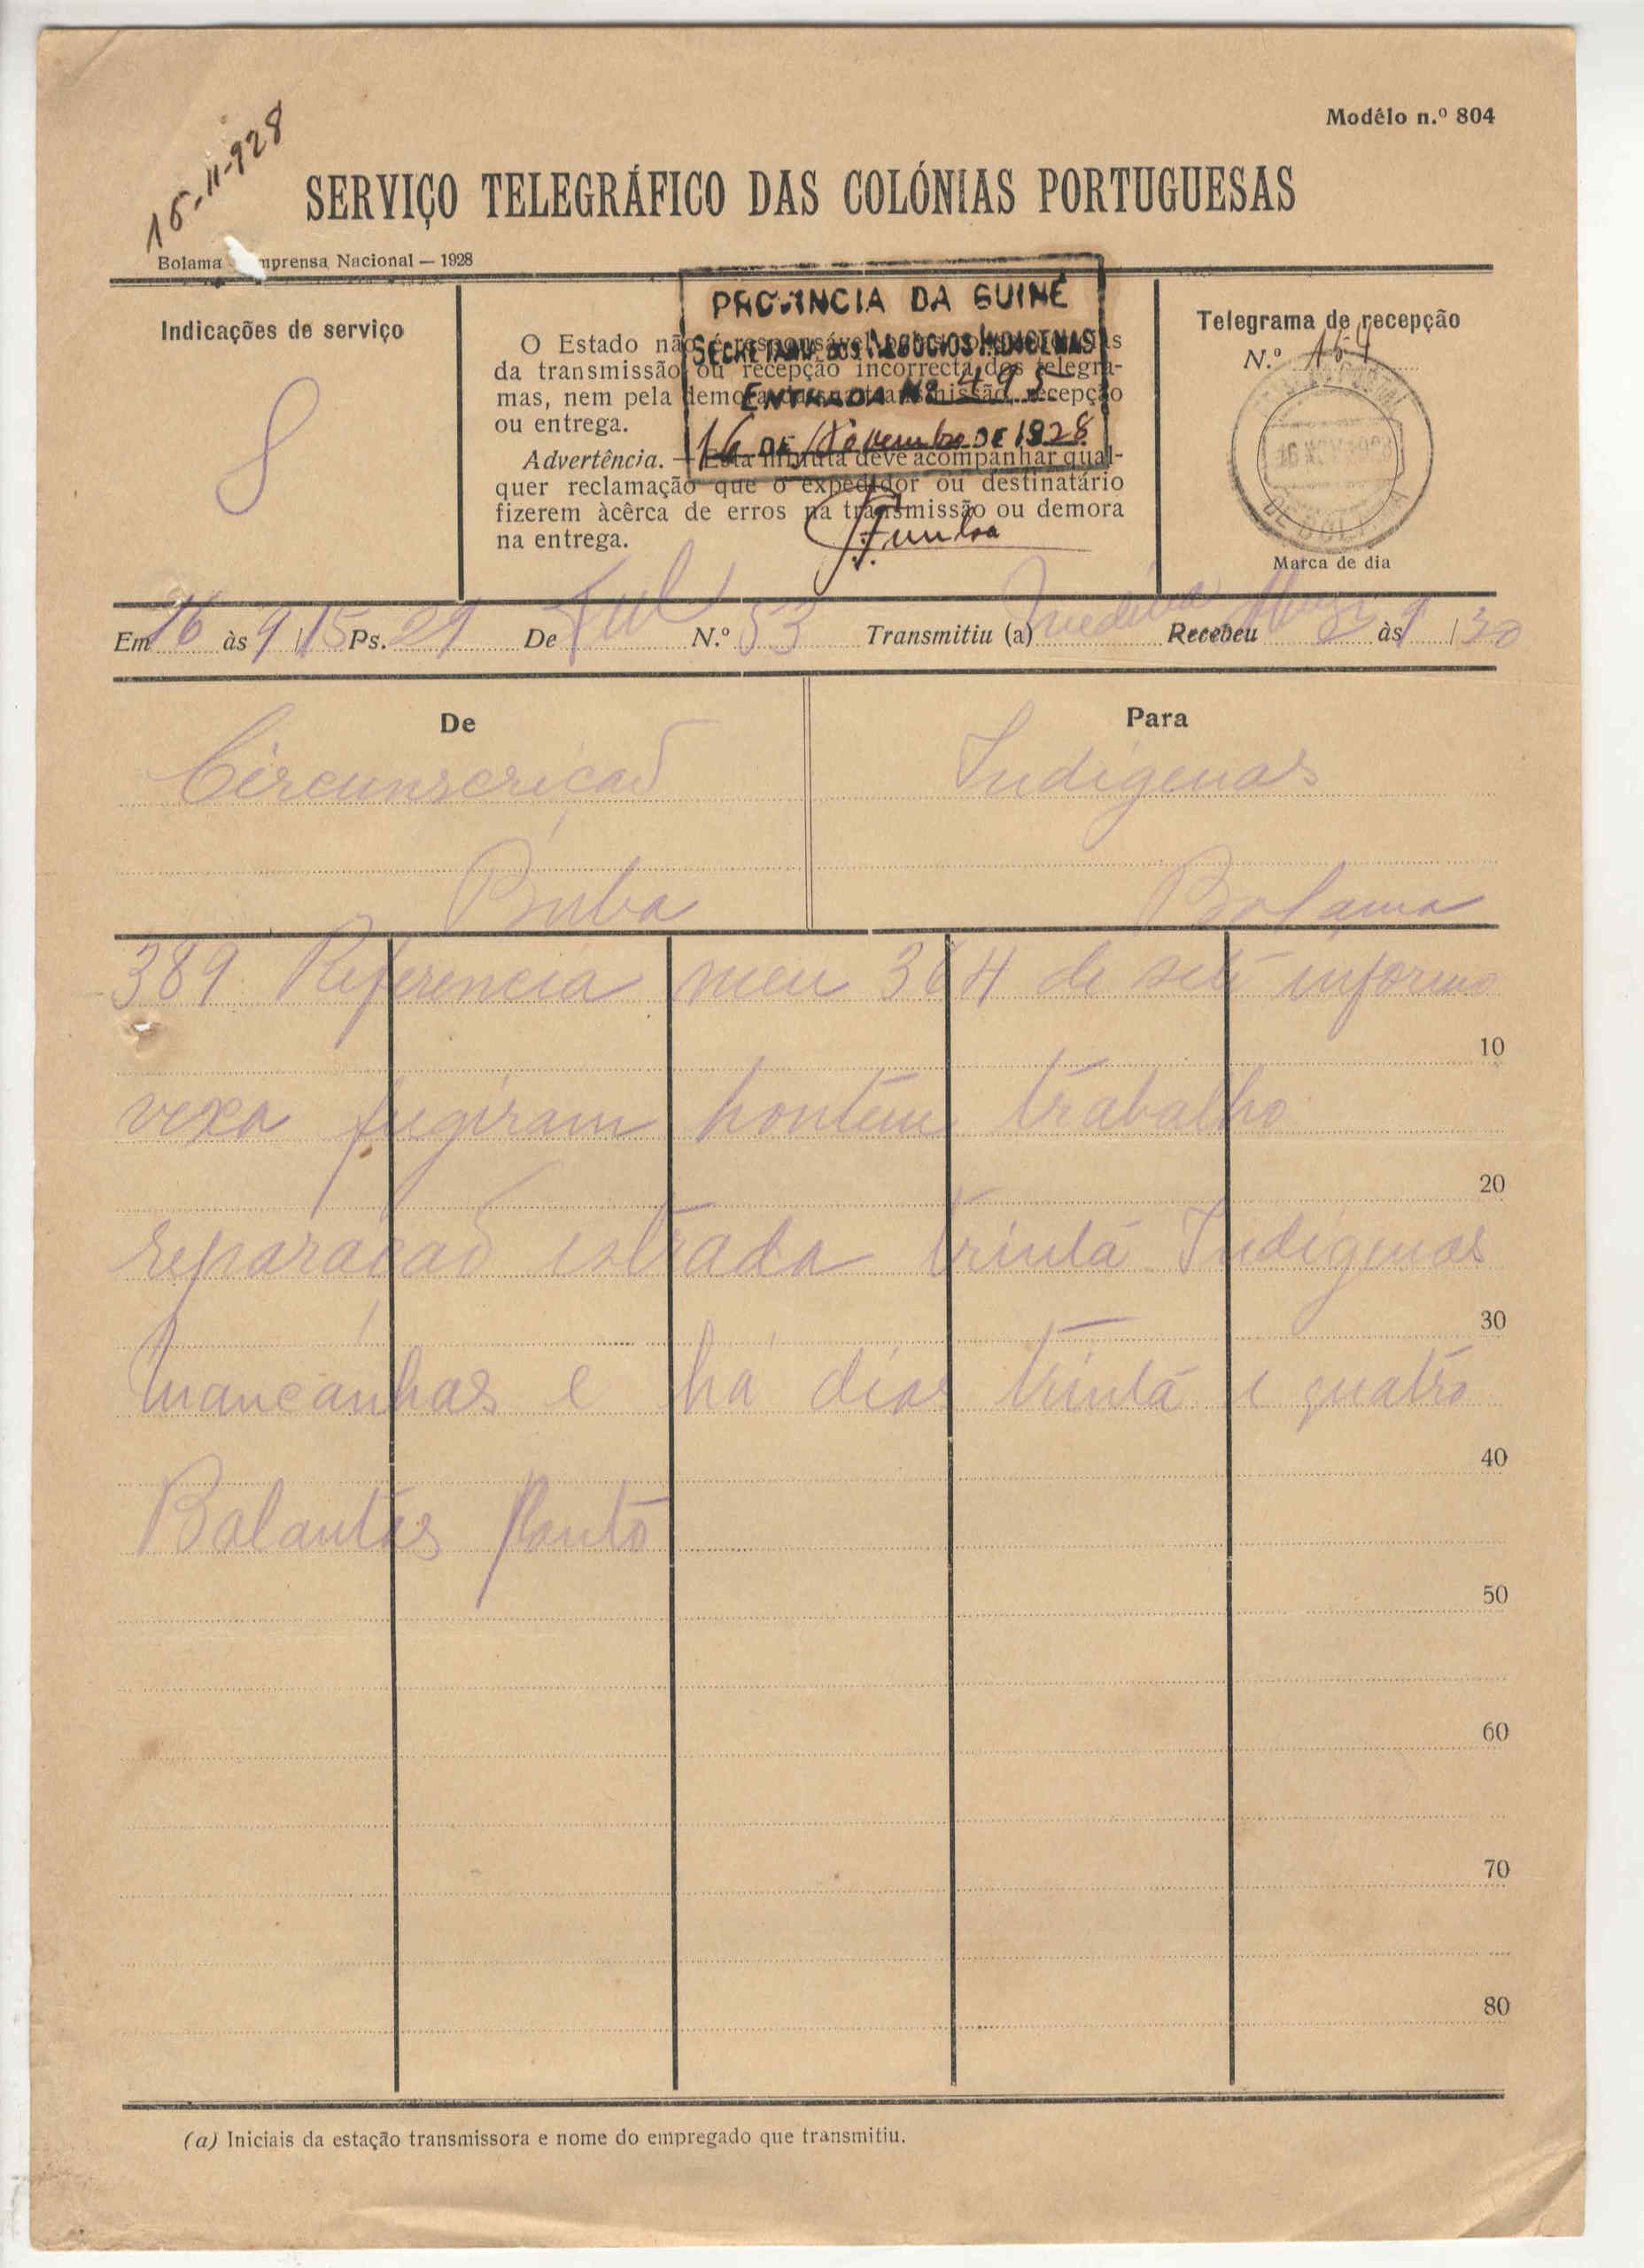 16-11-928
Modêlo n.º 804
SERVIÇO TELEGRÁFICO DAS COLÓNIAS PORTUGUESAS
Bolama mprensa Nacional — 1928
Indicações de serviço
8
O Estado não é responsável
da transmissão ou recepção incorrecta dos telegra-
mas, nem pela demora transmissão, recepção
ou entrega.
Advertência. — Esta minuta deve acompanhar qual-
quer reclamação que o expedidor ou destinatário
fizerem àcêrca de erros na transmissão ou demora
na entrega.
PROVINCIA DA GUINÉ
SECRETARIA DOS NEGOCIOS INDIGENAS
ENTRADA Nº 495
16 DE Novembro DE 1928
Telegrama de recepção
N.º 154
16 NOV 1928
DE BOLAMA
Marca de dia
Em 16 às 9 / 15 Ps. 29 De Ful N.º 53 Transmitiu (a) Medina Recebeu às 9 / 30
De
Para
Circunscrição
Indigenas
Buba
Bolama
389 Referencia meu 364 de sete informo
10
vexa fugiram hontem trabalho
20
reparação estrada trinta Indigenas
30
Mancanhas e há dias trinta e quatro
40
Balantas Ponto
50
60
70
80
(a) Iniciais da estação transmissora e nome do empregado que transmitiu.